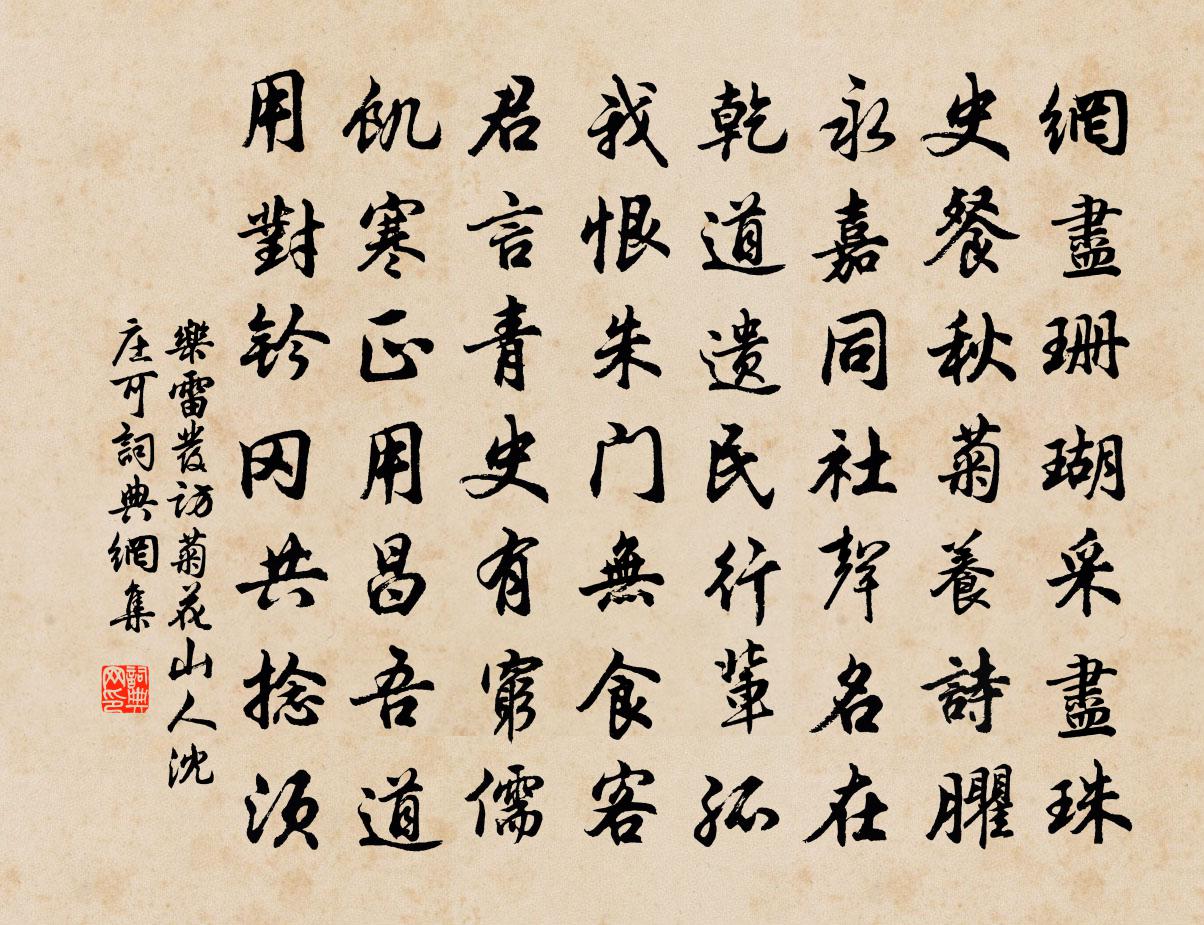 網盡珊瑚采盡珠
史餐秋菊養詩臞
永嘉同社聲名在
乾道遺民行輩孤
我恨朱门無食客
君言青史有窮儒
飢寒正用昌吾道
用對鈴冈共捻須
樂雷發访菊花山人沈
庄可詞典網集
詞典
网印